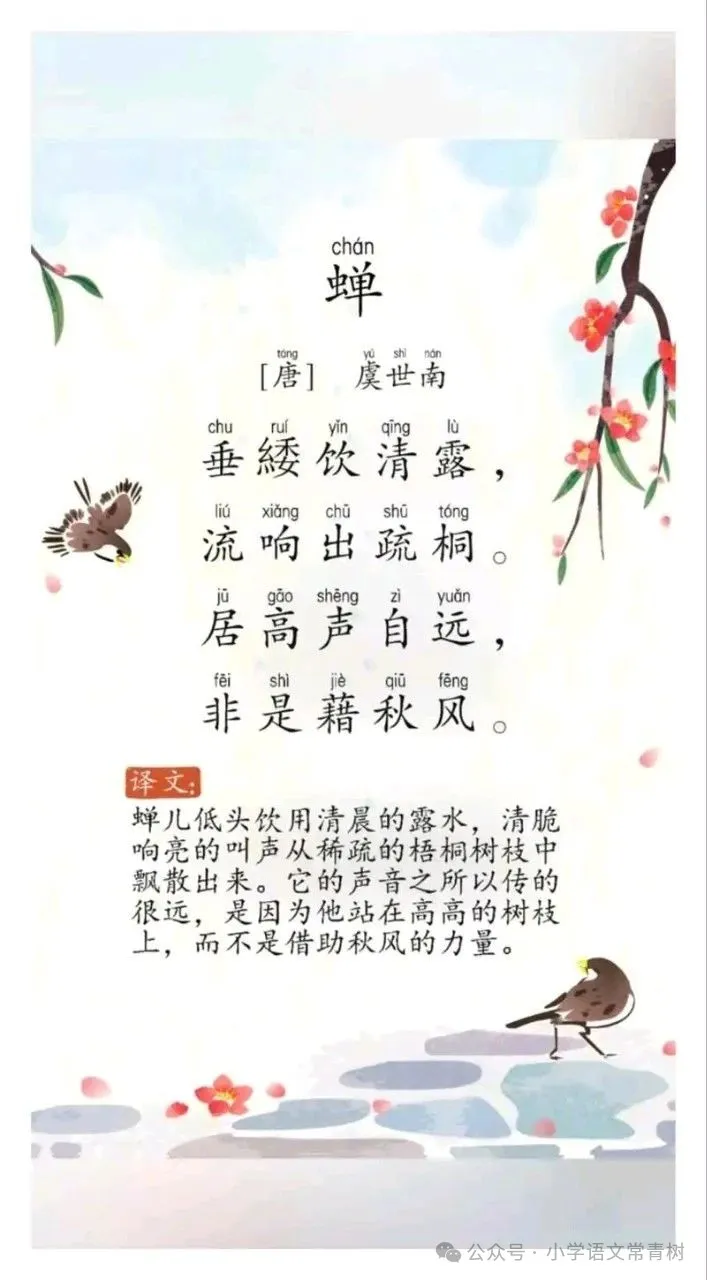 chán
蝉
táng yú shì nán
[唐] 虞世南
chu ruí yǐn qīng lù
垂緌饮清露，
liú xiǎng chū shū tóng
流响出疏桐。
jū gāo shēng zì yuǎn
居高声自远，
fēi shì jiè qiū fēng
非是藉秋风。
译文：
蝉儿低头饮用清晨的露水，清脆
响亮的叫声从稀疏的梧桐树枝中
飘散出来。它的声音之所以传的
很远，是因为他站在高高的树枝
上，而不是借助秋风的力量。
公众号·小学语文常青树